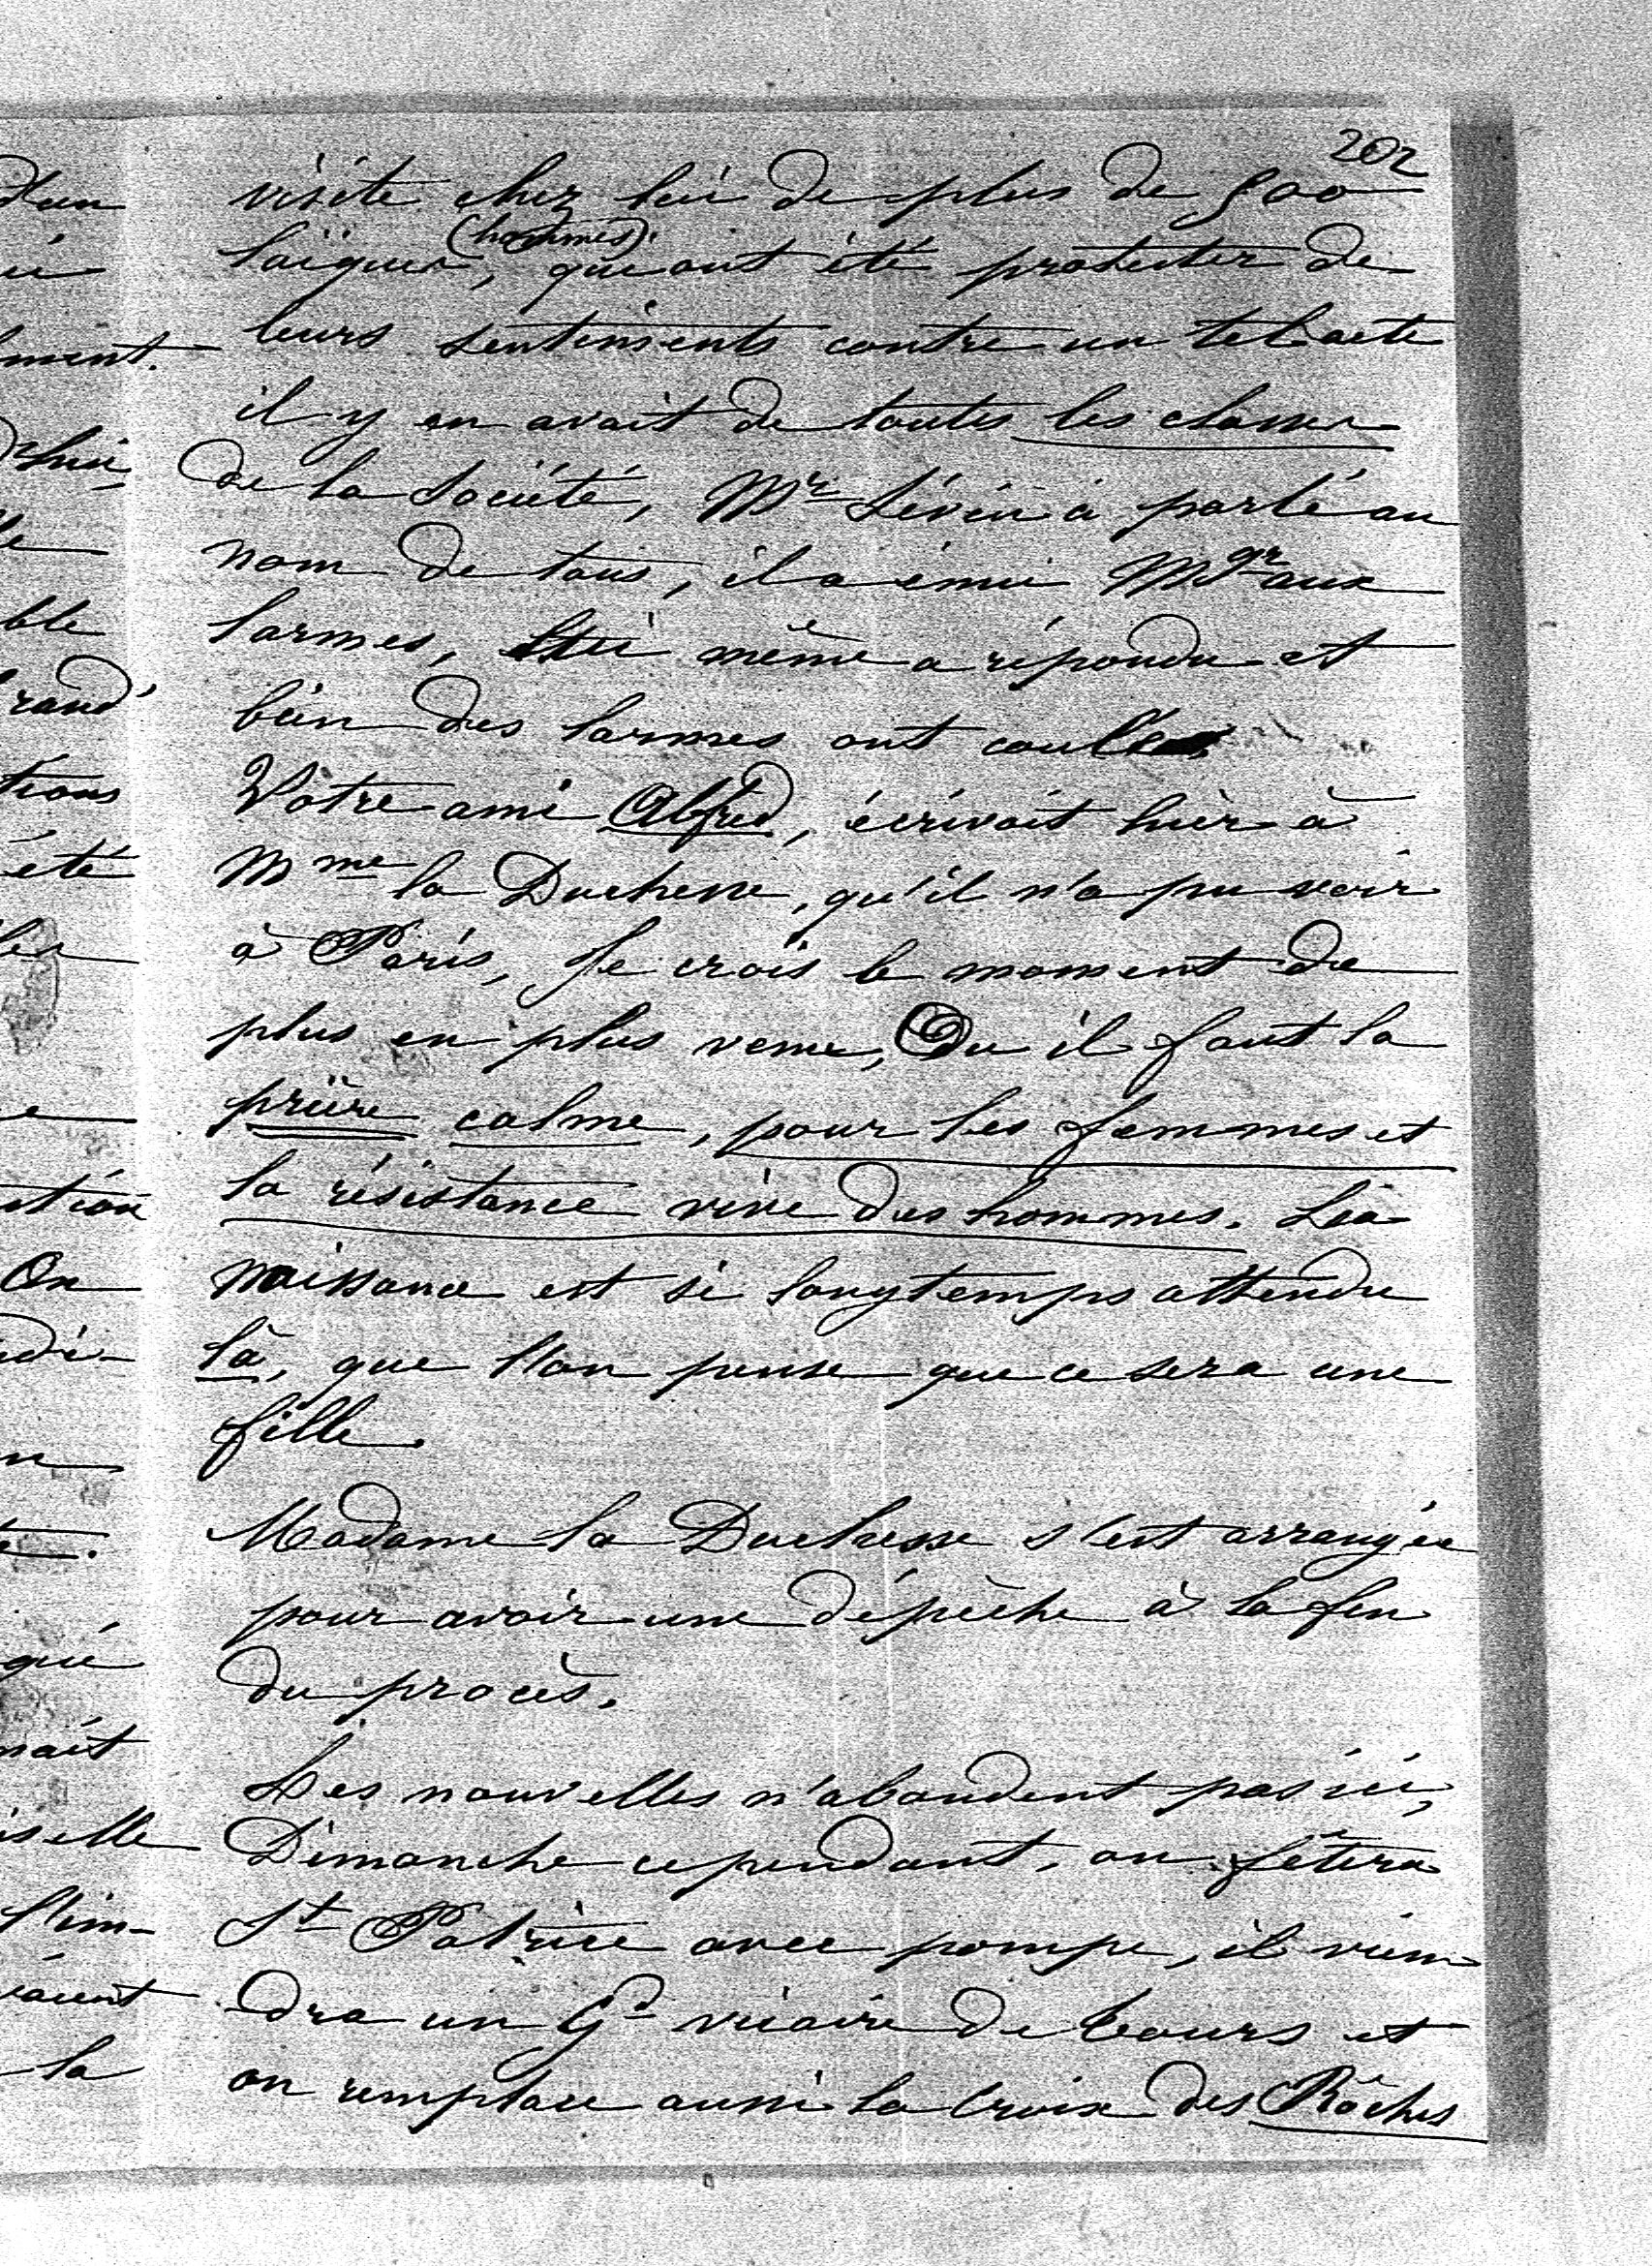 202
visite chez lui de plus de 500
(hommes)
laïques, qui ont été protester de
leurs sentiments contre un tel acte
il y en avait de toutes les classes
de la Société, Mr a parlé au
nom de tous, il a émū Mgr aux
larmes, lui même a répondu et
bien des larmes ont coulé
Votre ami Alfred, écrivait hier à
Mme la Duchesse, qu'il n'a pu voir
à Paris, Je crois le moment de
plus en plus venu, Ou il faut la
prière calme, pour les femmes et
la résistance vive des hommes. La
naissance est si longtemps attendu
là, que l'on pense que ce sera une
fille.
Madame la Duchesse s'est arrangée
pour avoir une dépêche à la fin
du procès.
Les nouvelles n'abondent pas ici,
Dimanche cependant, on fêtera
St Patrice avec pompe, il vien-
dra un Gd vicaire de Tours et
on remplace aussi la Croix des Rôches
d'un
ment.
ble
rand
tions
été
On
la